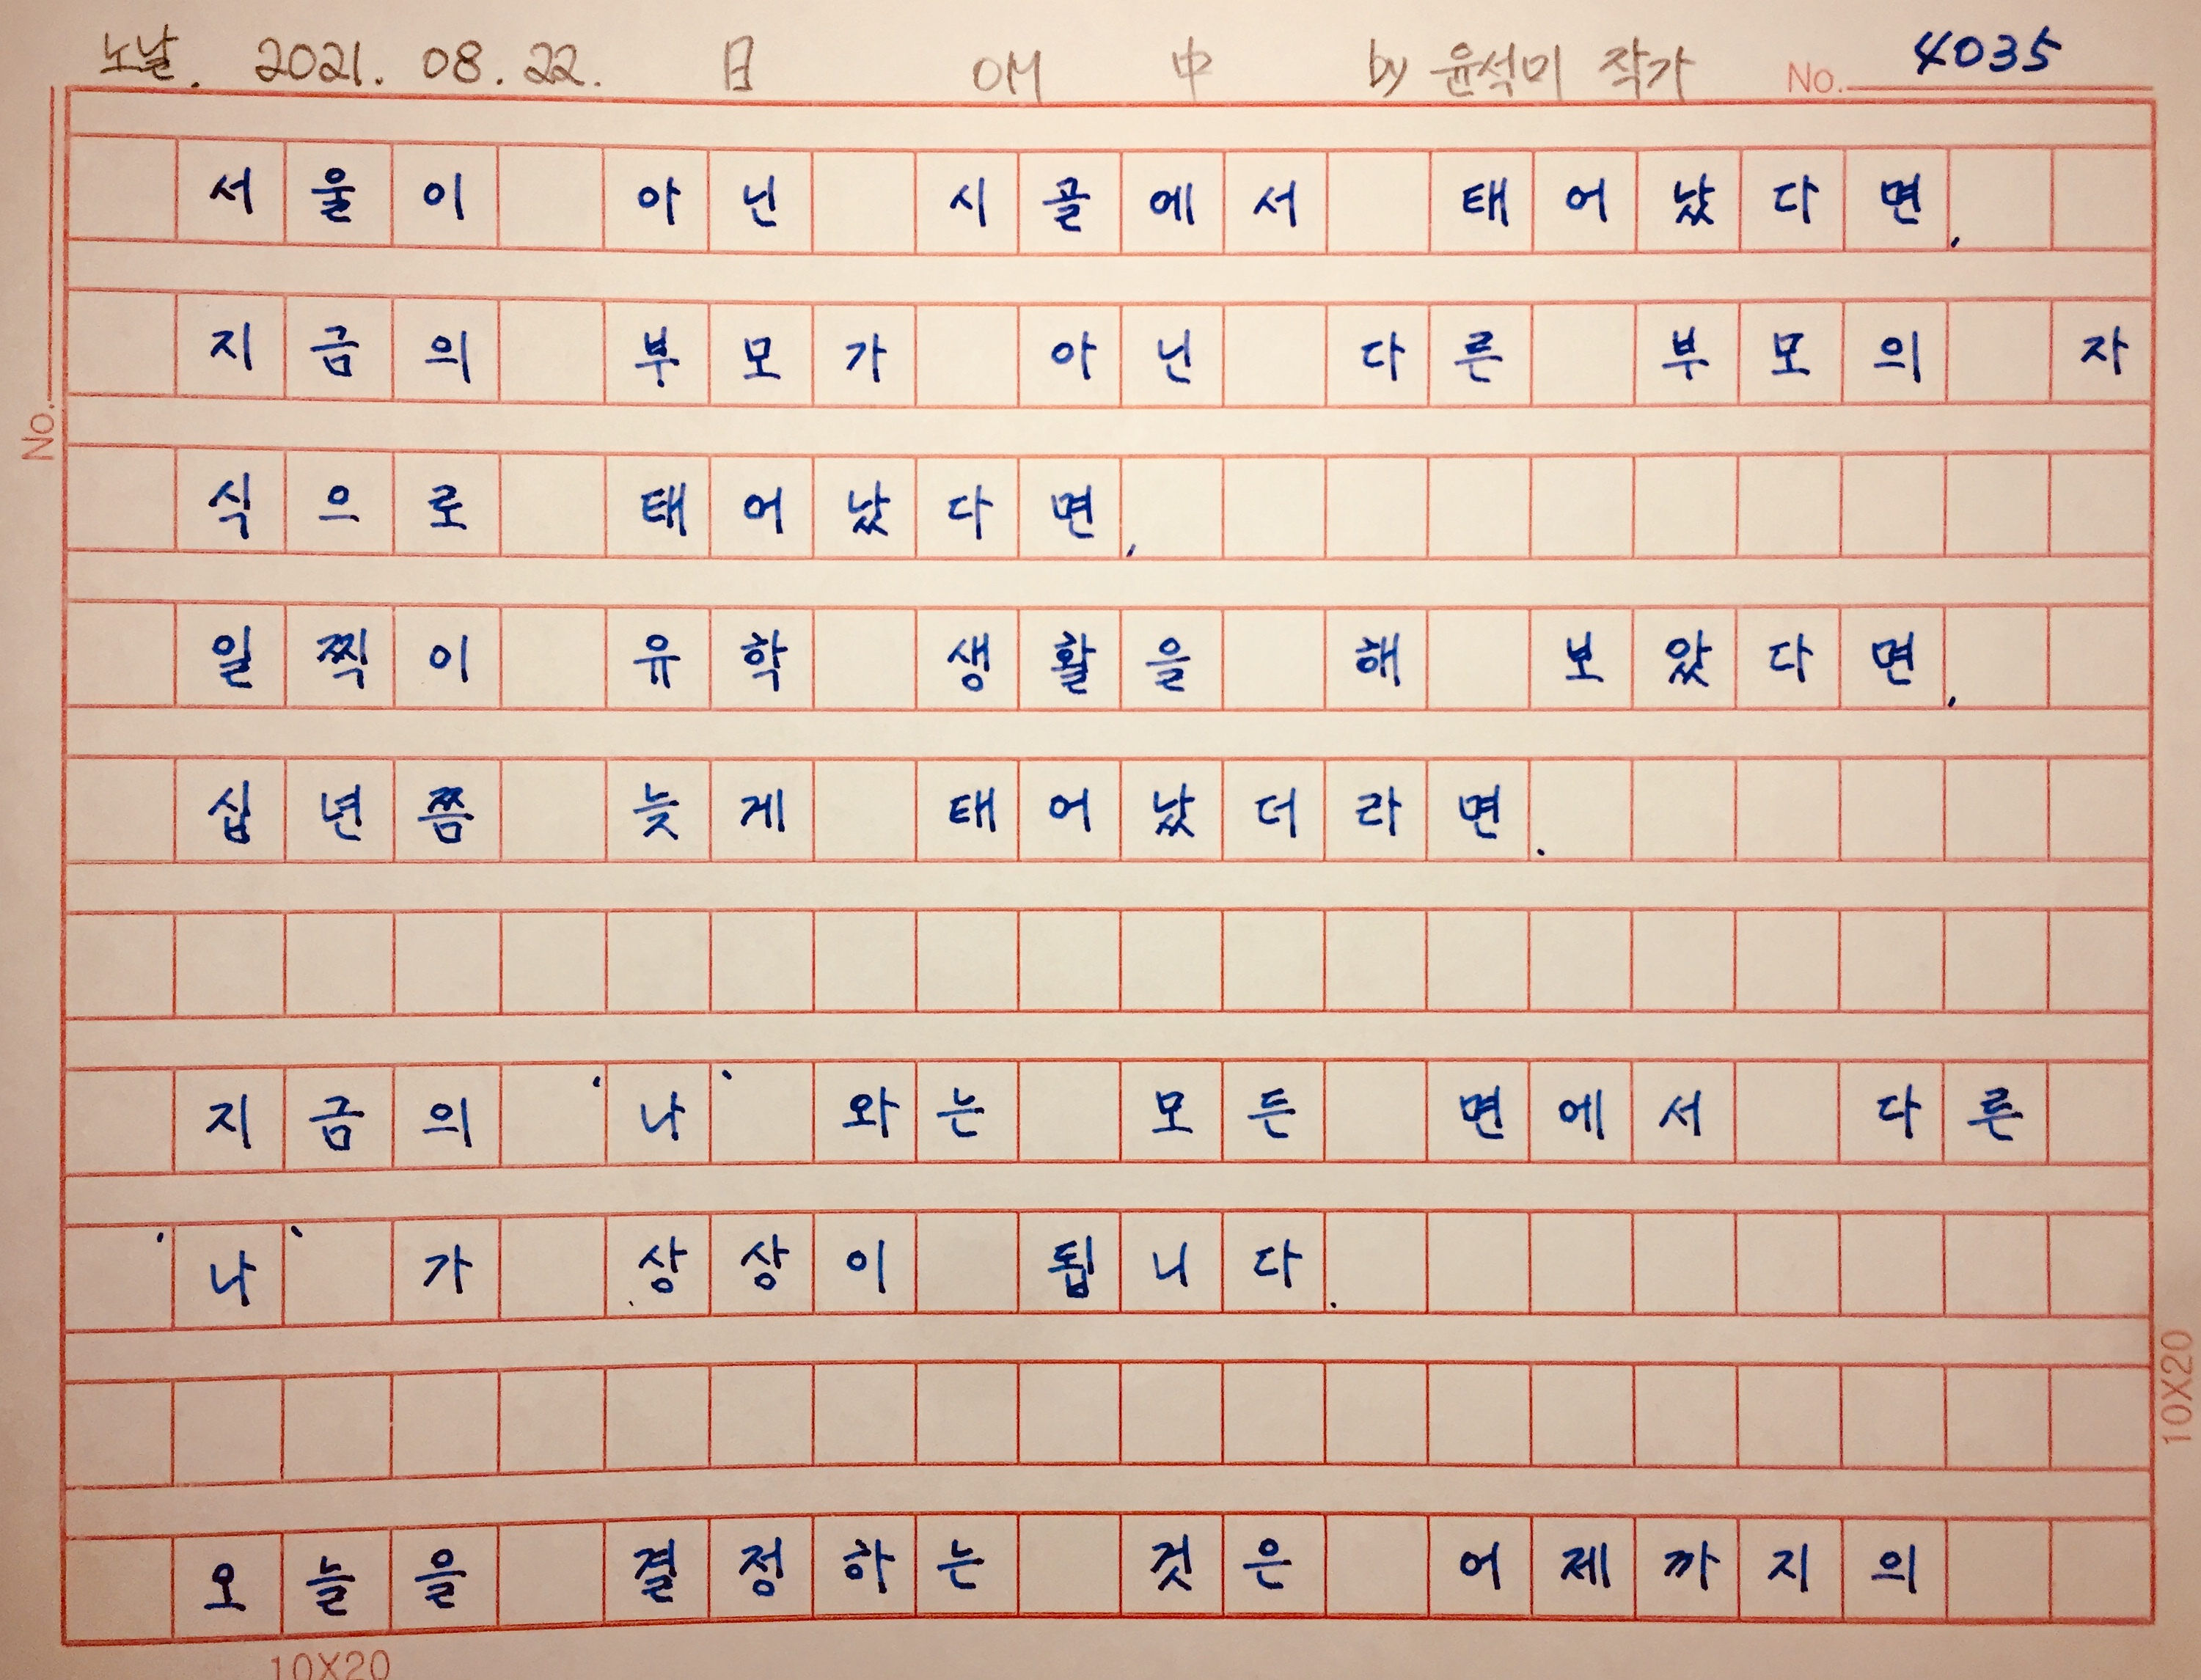 노날. 2021. 08. 22. 日 OM 中 by 윤석미 작가 No. 4035
서울이 아닌 시골에서 태어났다면,
지금의 부모가 아닌 다른 부모의 자
식으로 태어났다면,
일찍이 유학 생활을 해 보았다면,
십년쯤 늦게 태어났더라면.
지금의 '나'와는 모든 면에서 다른
'나'가 상상이 됩니다.
오늘을 결정하는 것은 어제까지의
No.
10X20
10X20